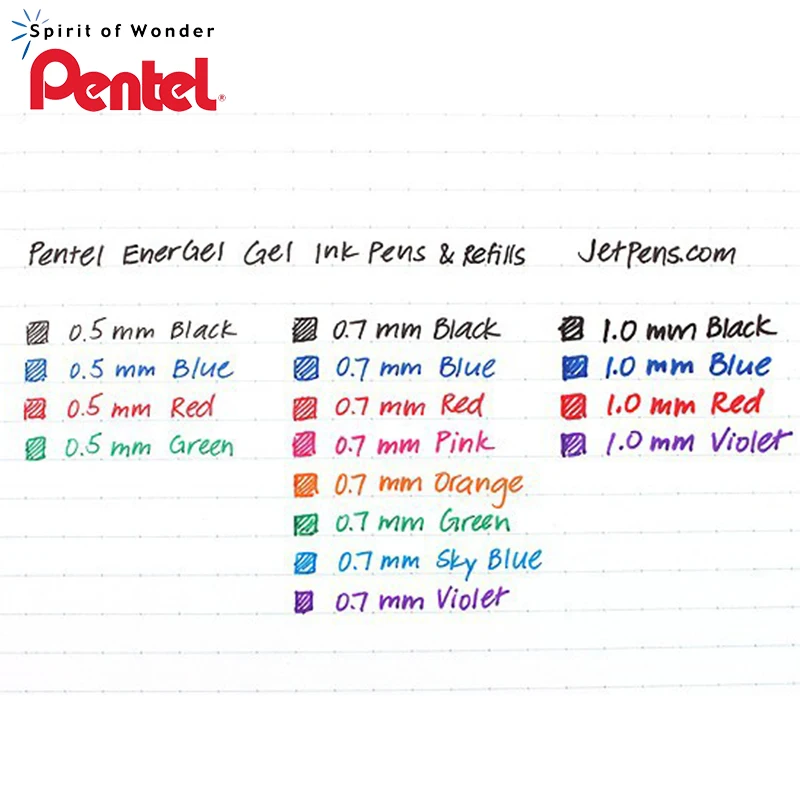 Spirit of Wonder
Pentel®
Pentel EnerGel Gel Ink Pens & Refills JetPens.com
0.5 mm Black 0.7 mm Black 1.0 mm Black
0.5 mm Blue 0.7 mm Blue 1.0 mm Blue
0.5 mm Red 0.7 mm Red 1.0 mm Red
0.5 mm Green 0.7 mm Pink 1.0 mm Violet
0.7 mm Orange
0.7 mm Green
0.7 mm Sky Blue
0.7 mm Violet